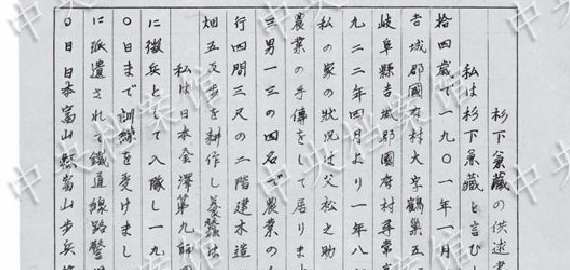 杉下兼蔵の供述書
私は杉下兼藏と言ひ
拾四歳で一九〇一年一月
吉城郡國府村大字鶴巣五
岐阜縣吉城郡國府村尋常高
九二二年四月より一年八
私の家の状況は父松之助
農業の手傳をして居りま
三男一三の四名で農業の
行四間三尺の二階建木造
畑五反歩を耕作し養蚕は
私は日本金澤第九師團
に徴兵として入隊し一九
〇日まで訓練を受けまし
に派遣されて鐵道線路警
〇日日本富山縣富山歩兵
中央档案馆